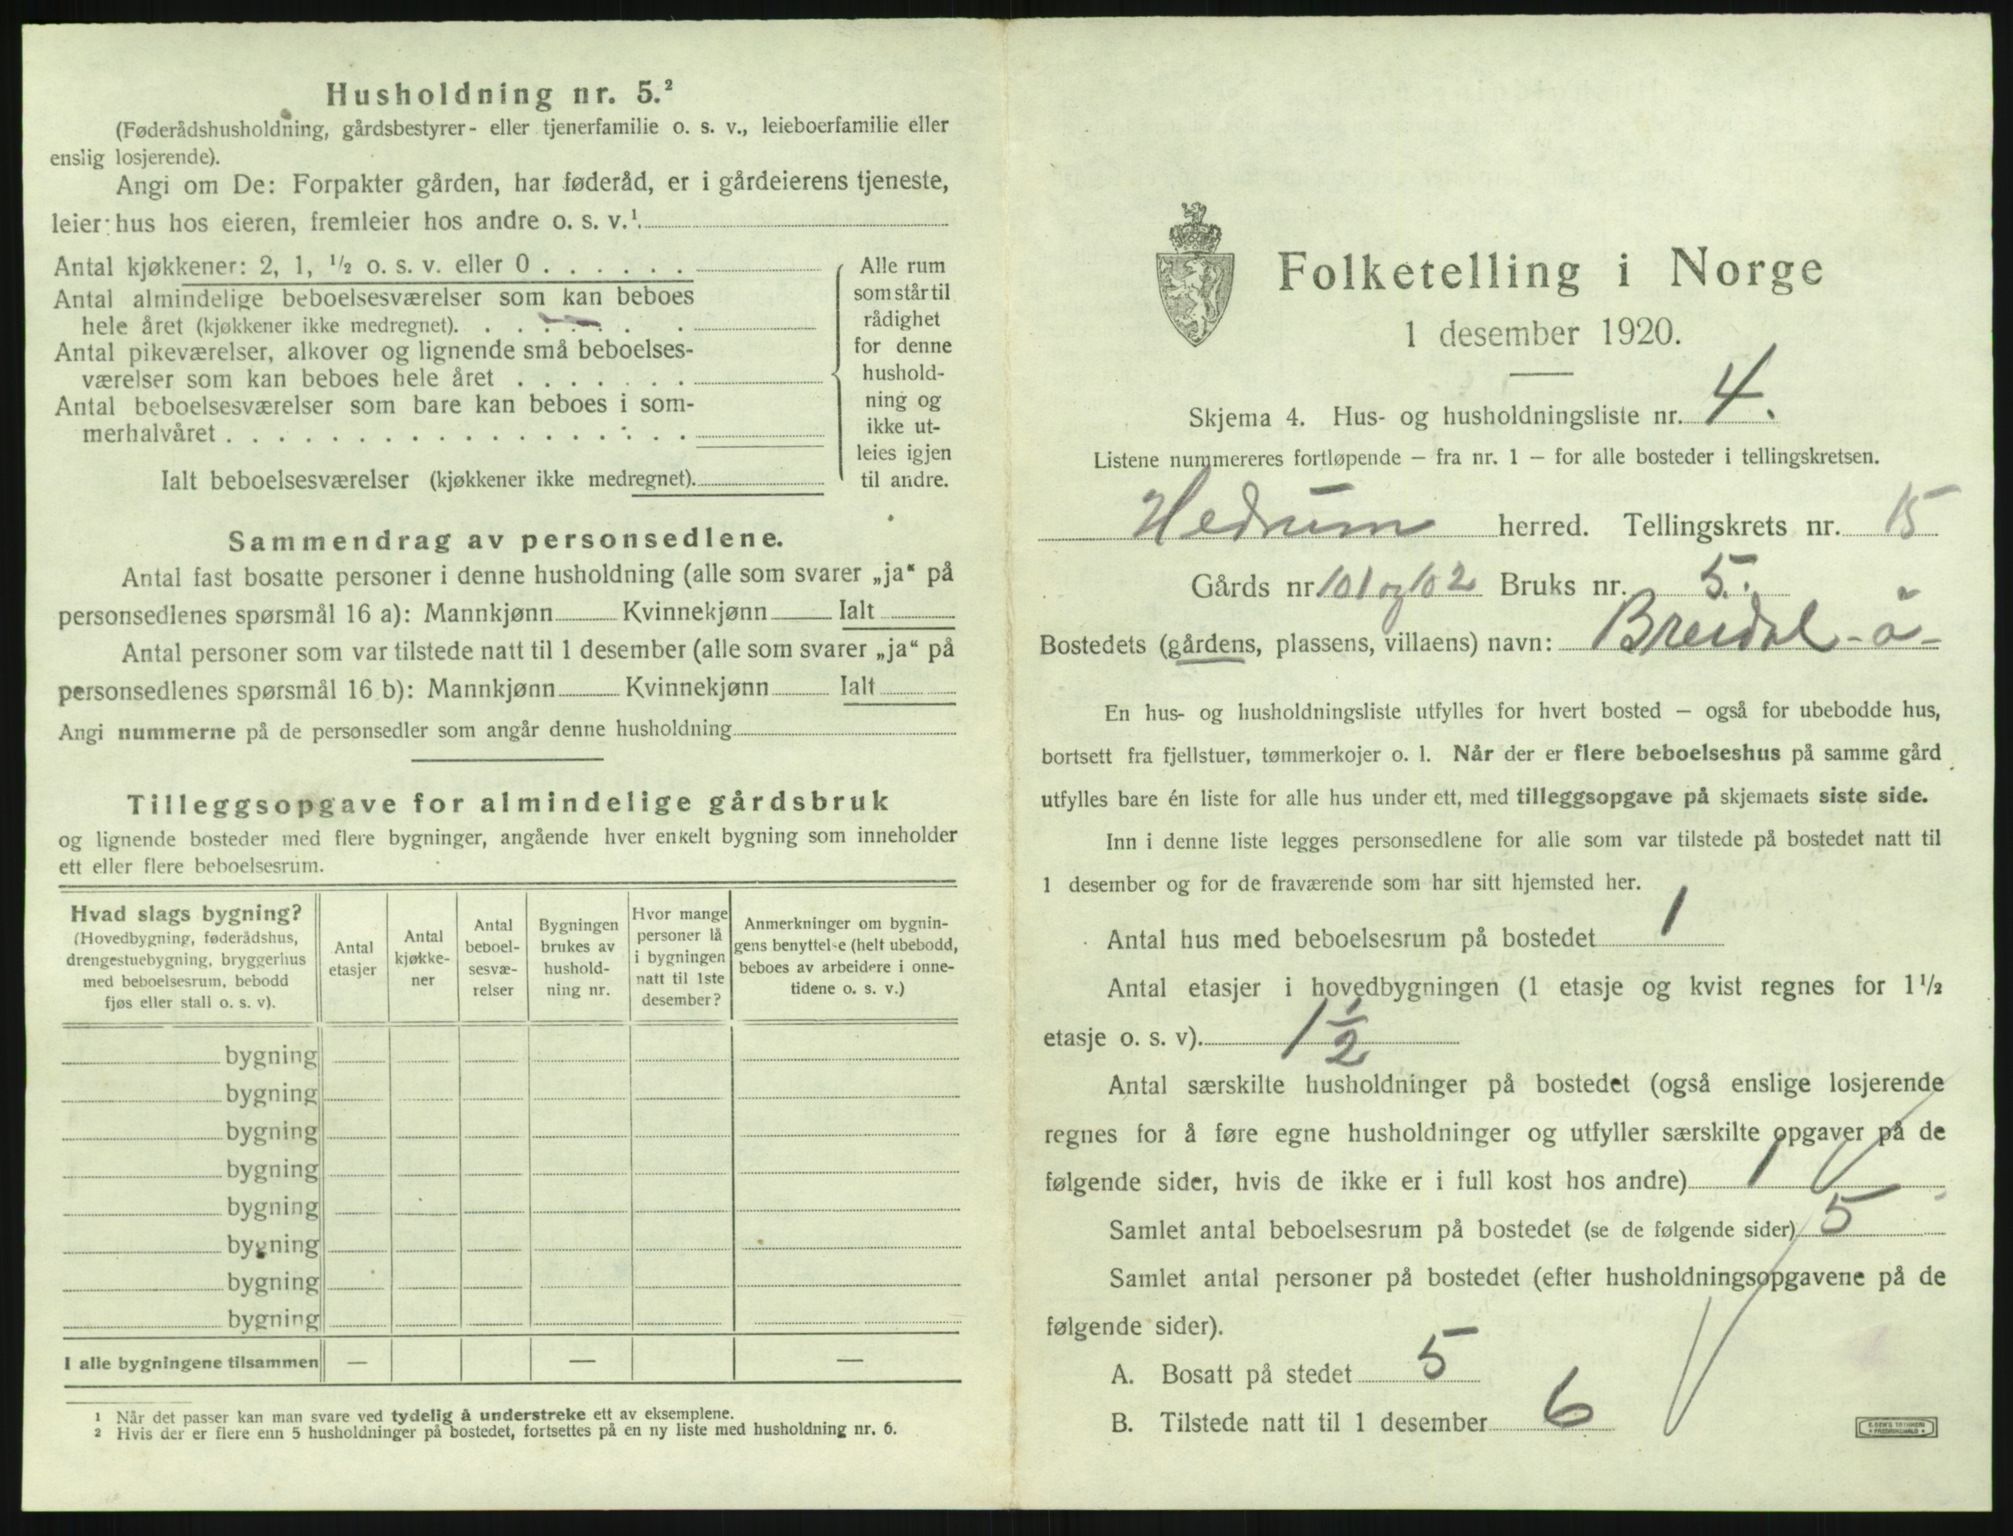 Husholdning nr. 5.²
(Føderådshusholdning, gårdsbestyrer- eller tjenerfamilie o. s. v., leieboerfamilie eller
enslig losjerende).
Angi om De: Forpakter gården, har føderåd, er i gårdeierens tjeneste,
leier hus hos eieren, fremleier hos andre o. s. v.¹
Antal kjøkkener: 2, 1, ½ o. s. v. eller 0 . . . . . .
Antal almindelige beboelsesværelser som kan beboes
hele året (kjøkkener ikke medregnet). . . . . . . .
Antal pikeværelser, alkover og lignende små beboelses-
værelser som kan beboes hele året . . . . . . .
Antal beboelsesværelser som bare kan beboes i som-
merhalvåret . . . . . . . . . . . . . . . . . .
Ialt beboelsesværelser (kjøkkener ikke medregnet).
Alle rum
som står til
rådighet
for denne
hushold-
ning og
ikke ut-
leies igjen
til andre.
Sammendrag av personsedlene.
Antal fast bosatte personer i denne husholdning (alle som svarer „ja“ på
personsedlenes spørsmål 16 a): Mannkjønn Kvinnekjønn Ialt
Antal personer som var tilstede natt til 1 desember (alle som svarer „ja“ på
personsedlenes spørsmål 16 b): Mannkjønn Kvinnekjønn Ialt
Angi nummerne på de personsedler som angår denne husholdning
Tilleggsopgave for almindelige gårdsbruk
og lignende bosteder med flere bygninger, angående hver enkelt bygning som inneholder
ett eller flere beboelsesrum.
Hvad slags bygning?
(Hovedbygning, føderådshus,
drengestuebygning, bryggerhus
med beboelsesrum, bebodd
fjøs eller stall o. s. v).
Antal
etasjer
Antal
kjøkke-
ner
Antal
beboel-
sesvæ-
relser
Bygningen
brukes av
hushold-
ning nr.
Hvor mange
personer lå
i bygningen
natt til 1ste
desember?
Anmerkninger om bygnin-
gens benyttelse (helt ubebodd,
beboes av arbeidere i onne-
tidene o. s. v.)
bygning
bygning
bygning
bygning
bygning
bygning
bygning
bygning
I alle bygningene tilsammen — — —
1 Når det passer kan man svare ved tydelig å understreke ett av eksemplene.
2 Hvis der er flere enn 5 husholdninger på bostedet, fortsettes på en ny liste med husholdning nr. 6.
Folketelling i Norge
1 desember 1920.
Skjema 4. Hus- og husholdningsliste nr. 4.
Listene nummereres fortløpende — fra nr. 1 — for alle bosteder i tellingskretsen.
Hedrum herred. Tellingskrets nr. 15
Gårds nr. 101 og 102 Bruks nr. 5.
Bostedets (gårdens, plassens, villaens) navn: Breidal -
En hus- og husholdningsliste utfylles for hvert bosted — også for ubebodde hus,
bortsett fra fjellstuer, tømmerkojer o. l. Når der er flere beboelseshus på samme gård
utfylles bare én liste for alle hus under ett, med tilleggsopgave på skjemaets siste side.
Inn i denne liste legges personsedlene for alle som var tilstede på bostedet natt til
1 desember og for de fraværende som har sitt hjemsted her.
Antal hus med beboelsesrum på bostedet 1
Antal etasjer i hovedbygningen (1 etasje og kvist regnes for 1½
etasje o. s. v). 1½
Antal særskilte husholdninger på bostedet (også enslige losjerende
regnes for å føre egne husholdninger og utfyller særskilte opgaver på de
følgende sider, hvis de ikke er i full kost hos andre) 1
Samlet antal beboelsesrum på bostedet (se de følgende sider) 5
Samlet antal personer på bostedet (efter husholdningsopgavene på de
følgende sider).
A. Bosatt på stedet 5
B. Tilstede natt til 1 desember 6